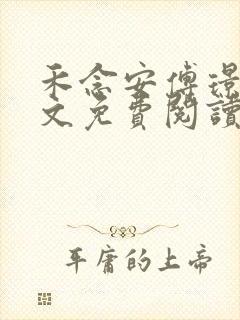 禾念安傅璟
文免費閱讀
平庸的上帝